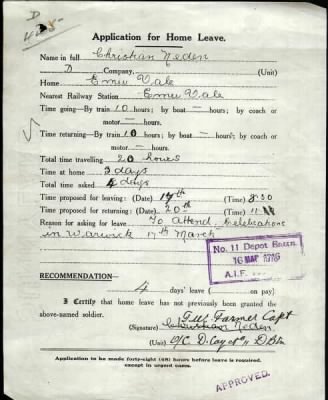 D
Application for Home Leave.
Name in full Christian Neden
D Company. (Unit)
Home Emu Vale
Nearest Railway Station Emu Vale
Time going—By train 10 hours; by boat — hours; by coach or
motor— hours.
Time returning—By train 10 hours; by boat — hours; by coach or
motor — hours.
Total time travelling 20 hours
Time at home 3 days
Total time asked 4 days
Time proposed for leaving: (Date) (Time) 8:30
Time proposed for returned: (Date) 20th (Time)
Reason for asking for leave To attend celebrations
in Warwick 17th March
No. 11 DEPOT BATTN.
16 MAR 1916
A.I.F.
RECOMMENDATION—
4 days' leave ( on pay)
I Certify that home leave has not previously been granted the
above-named soldier.
Farmer Capt
(Signature) Christian Neden
(Unit) O/C D. Coy 11 D Btn
Application to be made forty-eight (48) hours before leave is required.
except in urgent cases.
APPROVED.